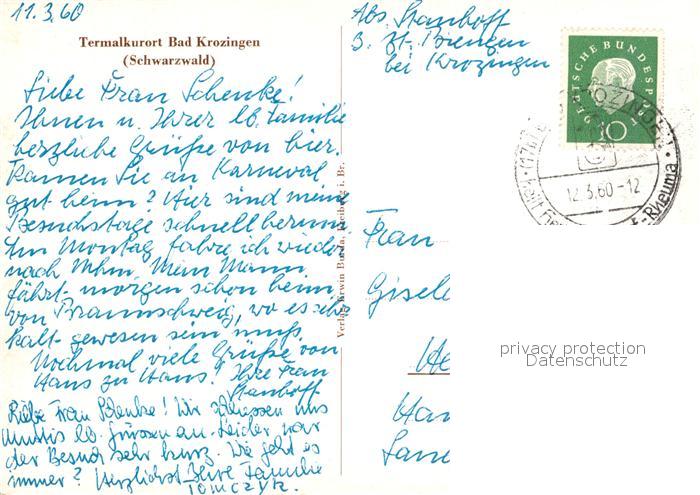 11.3.60
Termalkurort Bad Krozingen
(Schwarzwald)
Liebe Frau Schenke!
Ihnen u. Ihrer lb. Familie
herzliche Grüße von hier.
Kamen Sie an Karneval
gut heim? Hier sind meine
Besuchstage schnell herum.
Am Montag fahre ich wieder
nach Mhm. Mein Mann
fährt morgen schon heim
von Braunschweig, wo es sehr
kalt gewesen sein muß.
Nochmal viele Grüße von
Haus zu Haus! Ihre Frau
Stauhoff
Liebe Frau Schenke! Wir schliessen uns
Muttis lb. Grüssen an. Leider war
der Besuch sehr kurz. Wie geht es
immer? Herzlichst Ihre Familie
Tomczyk.
Verlag Erwin Burda, Freiburg i. Br.
Abs. Stauhoff
z. Zt. Biengen
bei Krozingen
DEUTSCHE BUNDESPOST
10
KROZINGEN
12.3.60-12
Rheuma
Frau
Gisel
He
Han
Lan
privacy protection
Datenschutz